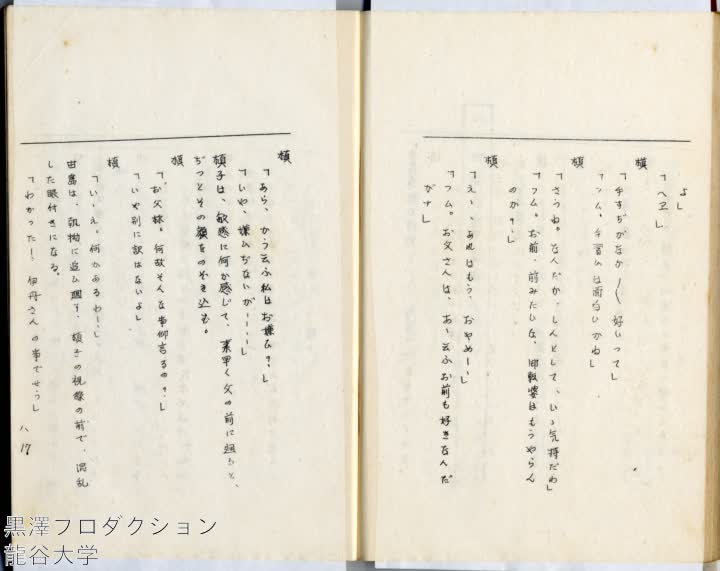 よ」
「ヘエ」
槙「手すぢがなか／＼好いつて」
「フム。手習ひは面白いかね」
槙「さうね。なんだか、しんとして、いゝ気持だわ」
「フム。お前、前みたいな、
のか？」
槙「えゝ、あれはもう、おやめ――」
「フム。お父さんは、あゝ云ふお前も好きなんだ
がナ」
槙「あら、かう云ふ私はお嫌ひ？」
「いや、嫌ひぢないが――」
槙子は、敏感に何か感じて、素早く父の前に廻ると、
ぢつとその顔をのぞき込む。
槙「お父様。何故そんな事仰言るの？」
「いや別に訳はないよ」
槙「いゝえ。何かあるわ――」
由島は、執拗に追ひ廻す、槙子の視線の前で、混乱
した眼付きになる。
「わかった！ 伊丹さんの事でせう」
八 17
黒澤プロダクション
龍谷大学